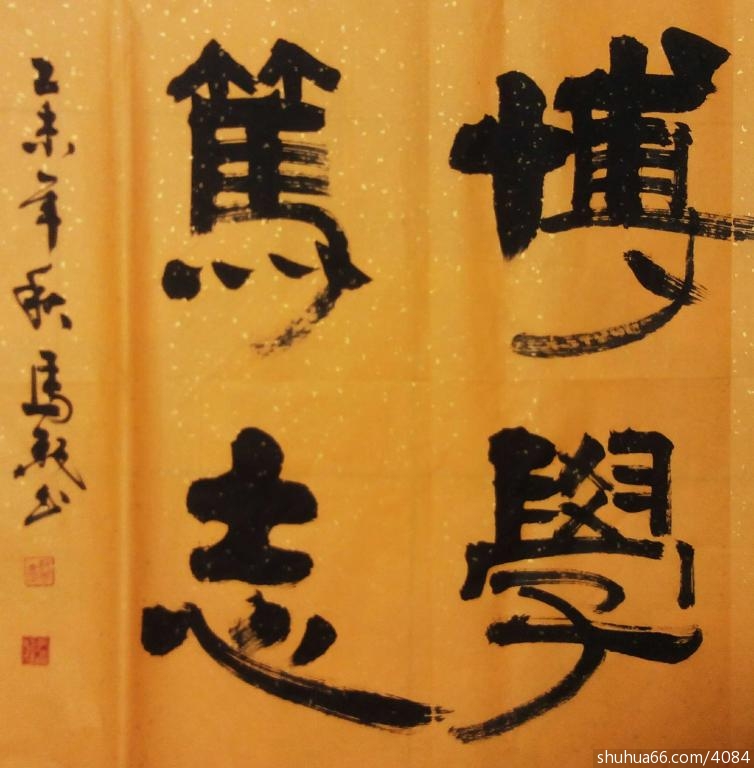 博學
篤志
乙未年秋馬
shuhua66.com/4084